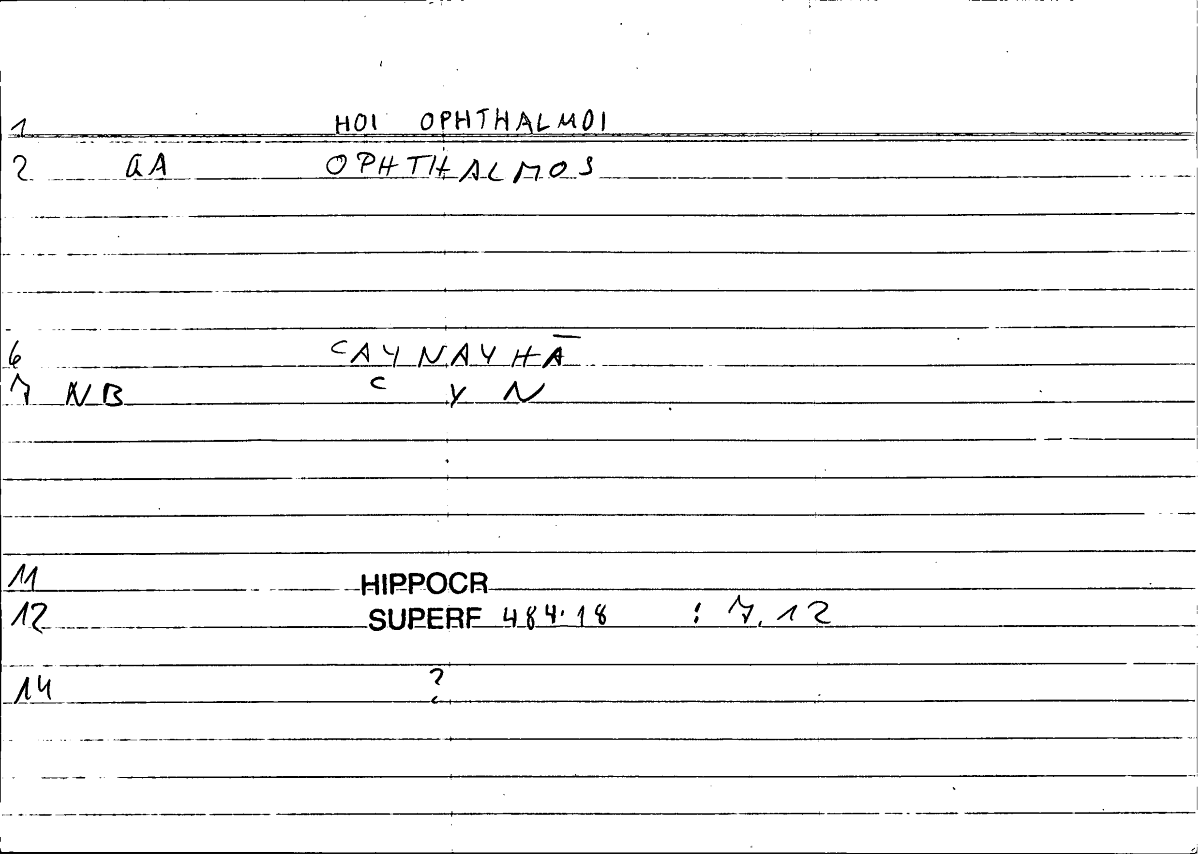 1 HOI OPHTHALMOI
2 QA OPHTHALMOS
6 CAYNAYHĀ
7 NB C Y N
11 HIPPOCR
12 SUPERF 484.18 : 7.12
14 ?